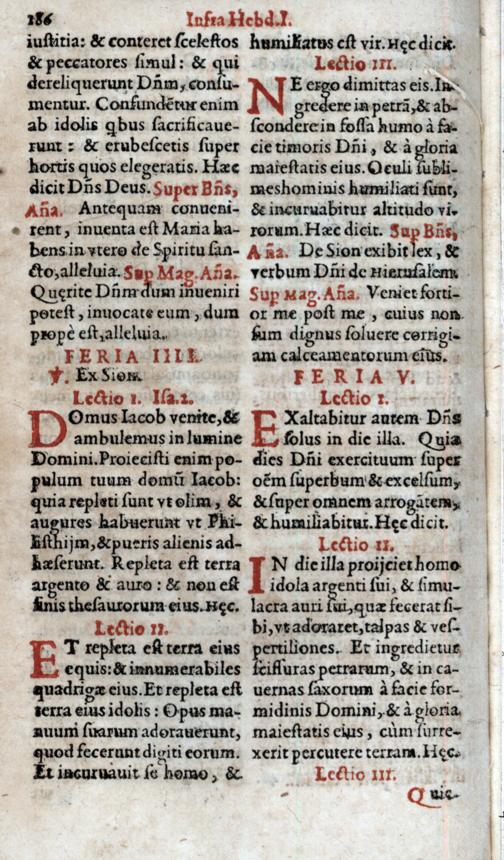 186
Infra Hebd. I.
iustitia: & conteret scelestos
& peccatores simul: & qui
dereliquerunt Dñm, consu-
mentur. Confundẽtur enim
ab idolis qbus sacrificaue-
runt: & erubescetis super
hortis quos elegeratis. Hæc
dicit Dñs Deus. Super Bñs,
Aña. Antequam conueni-
rent, inuenta est Maria ha-
bens in vtero de Spiritu san-
cto, alleluia. Sup Mag. Aña.
Quęrite Dñm dum inueniri
potest, inuocate eum, dum
propè est, alleluia.
FERIA IIII.
℣. Ex Sion.
Lectio I. Isa. 2.
Domus Iacob venite, &
ambulemus in lumine
Domini. Proiecisti enim po-
pulum tuum domũ Iacob:
quia repleti sunt vt olim, &
augures habuerunt vt Phi-
listhijm, & pueris alienis ad-
hæserunt. Repleta est terra
argento & auro: & non est
finis thesaurorum eius. Hęc.
Lectio II.
ET repleta est terra eius
equis: & innumerabiles
quadrigæ eius. Et repleta est
terra eius idolis: Opus ma-
nuum suarum adorauerunt,
quod fecerunt digiti eorum.
Et incuruauit se homo, &
humiliatus est vir. Hęc dicit.
Lectio III.
NE ergo dimittas eis. In-
gredere in petrã, & ab-
scondere in fossa humo à fa-
cie timoris Dñi, & à gloria
maiestatis eius. Oculi subli-
mes hominis humiliati sunt,
& incuruabitur altitudo vi-
rorum. Hæc dicit. Sup Bñs,
Aña. De Sion exibit lex, &
verbum Dñi de Hierusalem.
Sup Mag. Aña. Veniet forti-
or me post me, cuius non
sum dignus soluere corrigi-
am calceamentorum eius.
FERIA V.
Lectio I.
EXaltabitur autem Dñs
solus in die illa. Quia
dies Dñi exercituum super
oẽm superbum & excelsum,
& super omnem arrogãtem,
& humiliabitur. Hęc dicit.
Lectio II.
IN die illa proijciet homo
idola argenti sui, & simu-
lacra auri sui, quæ fecerat si-
bi, vt adoraret, talpas & ves-
pertiliones. Et ingredietur
scissuras petrarum, & in ca-
uernas saxorum à facie for-
midinis Domini, & à gloria
maiestatis eius, cùm surre-
xerit percutere terram. Hęc.
Lectio III.
Quie-